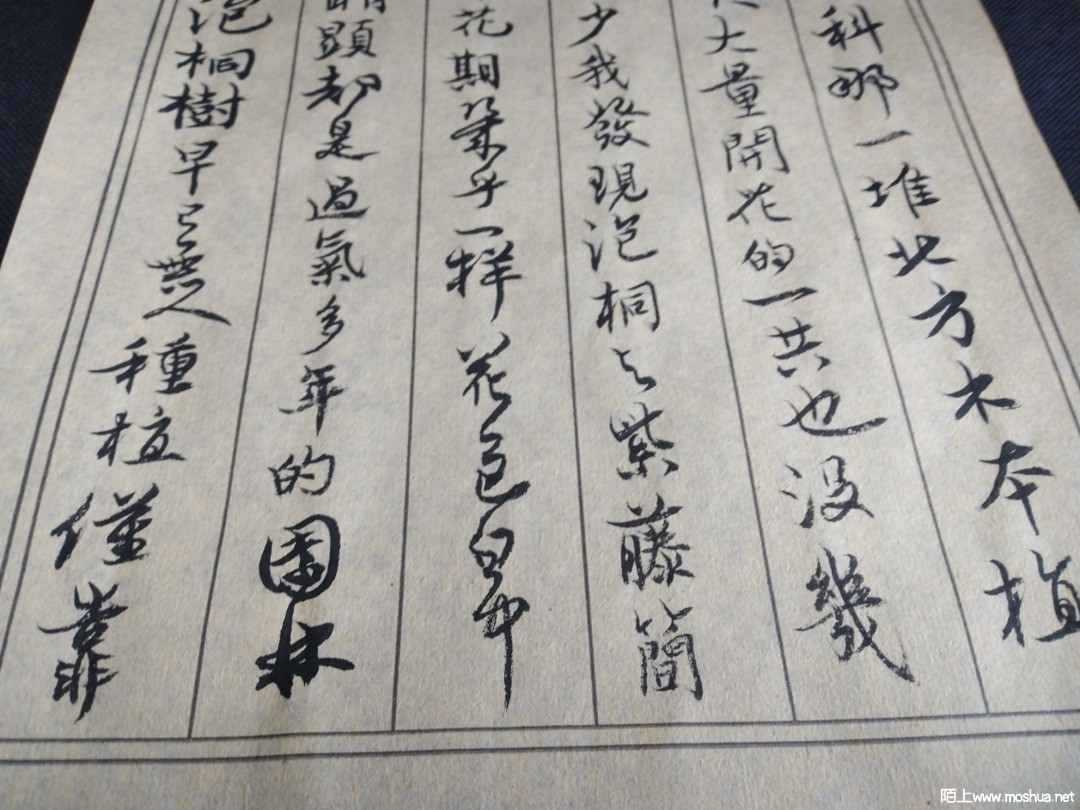 科那一堆北方木本植
大量開花的一共也没幾
少我發現泡桐与紫藤簡
花期幾乎一样花色白中
顯却是過氣多年的園林
泡桐樹早已無人種植僅靠
陌上www.moshua.net